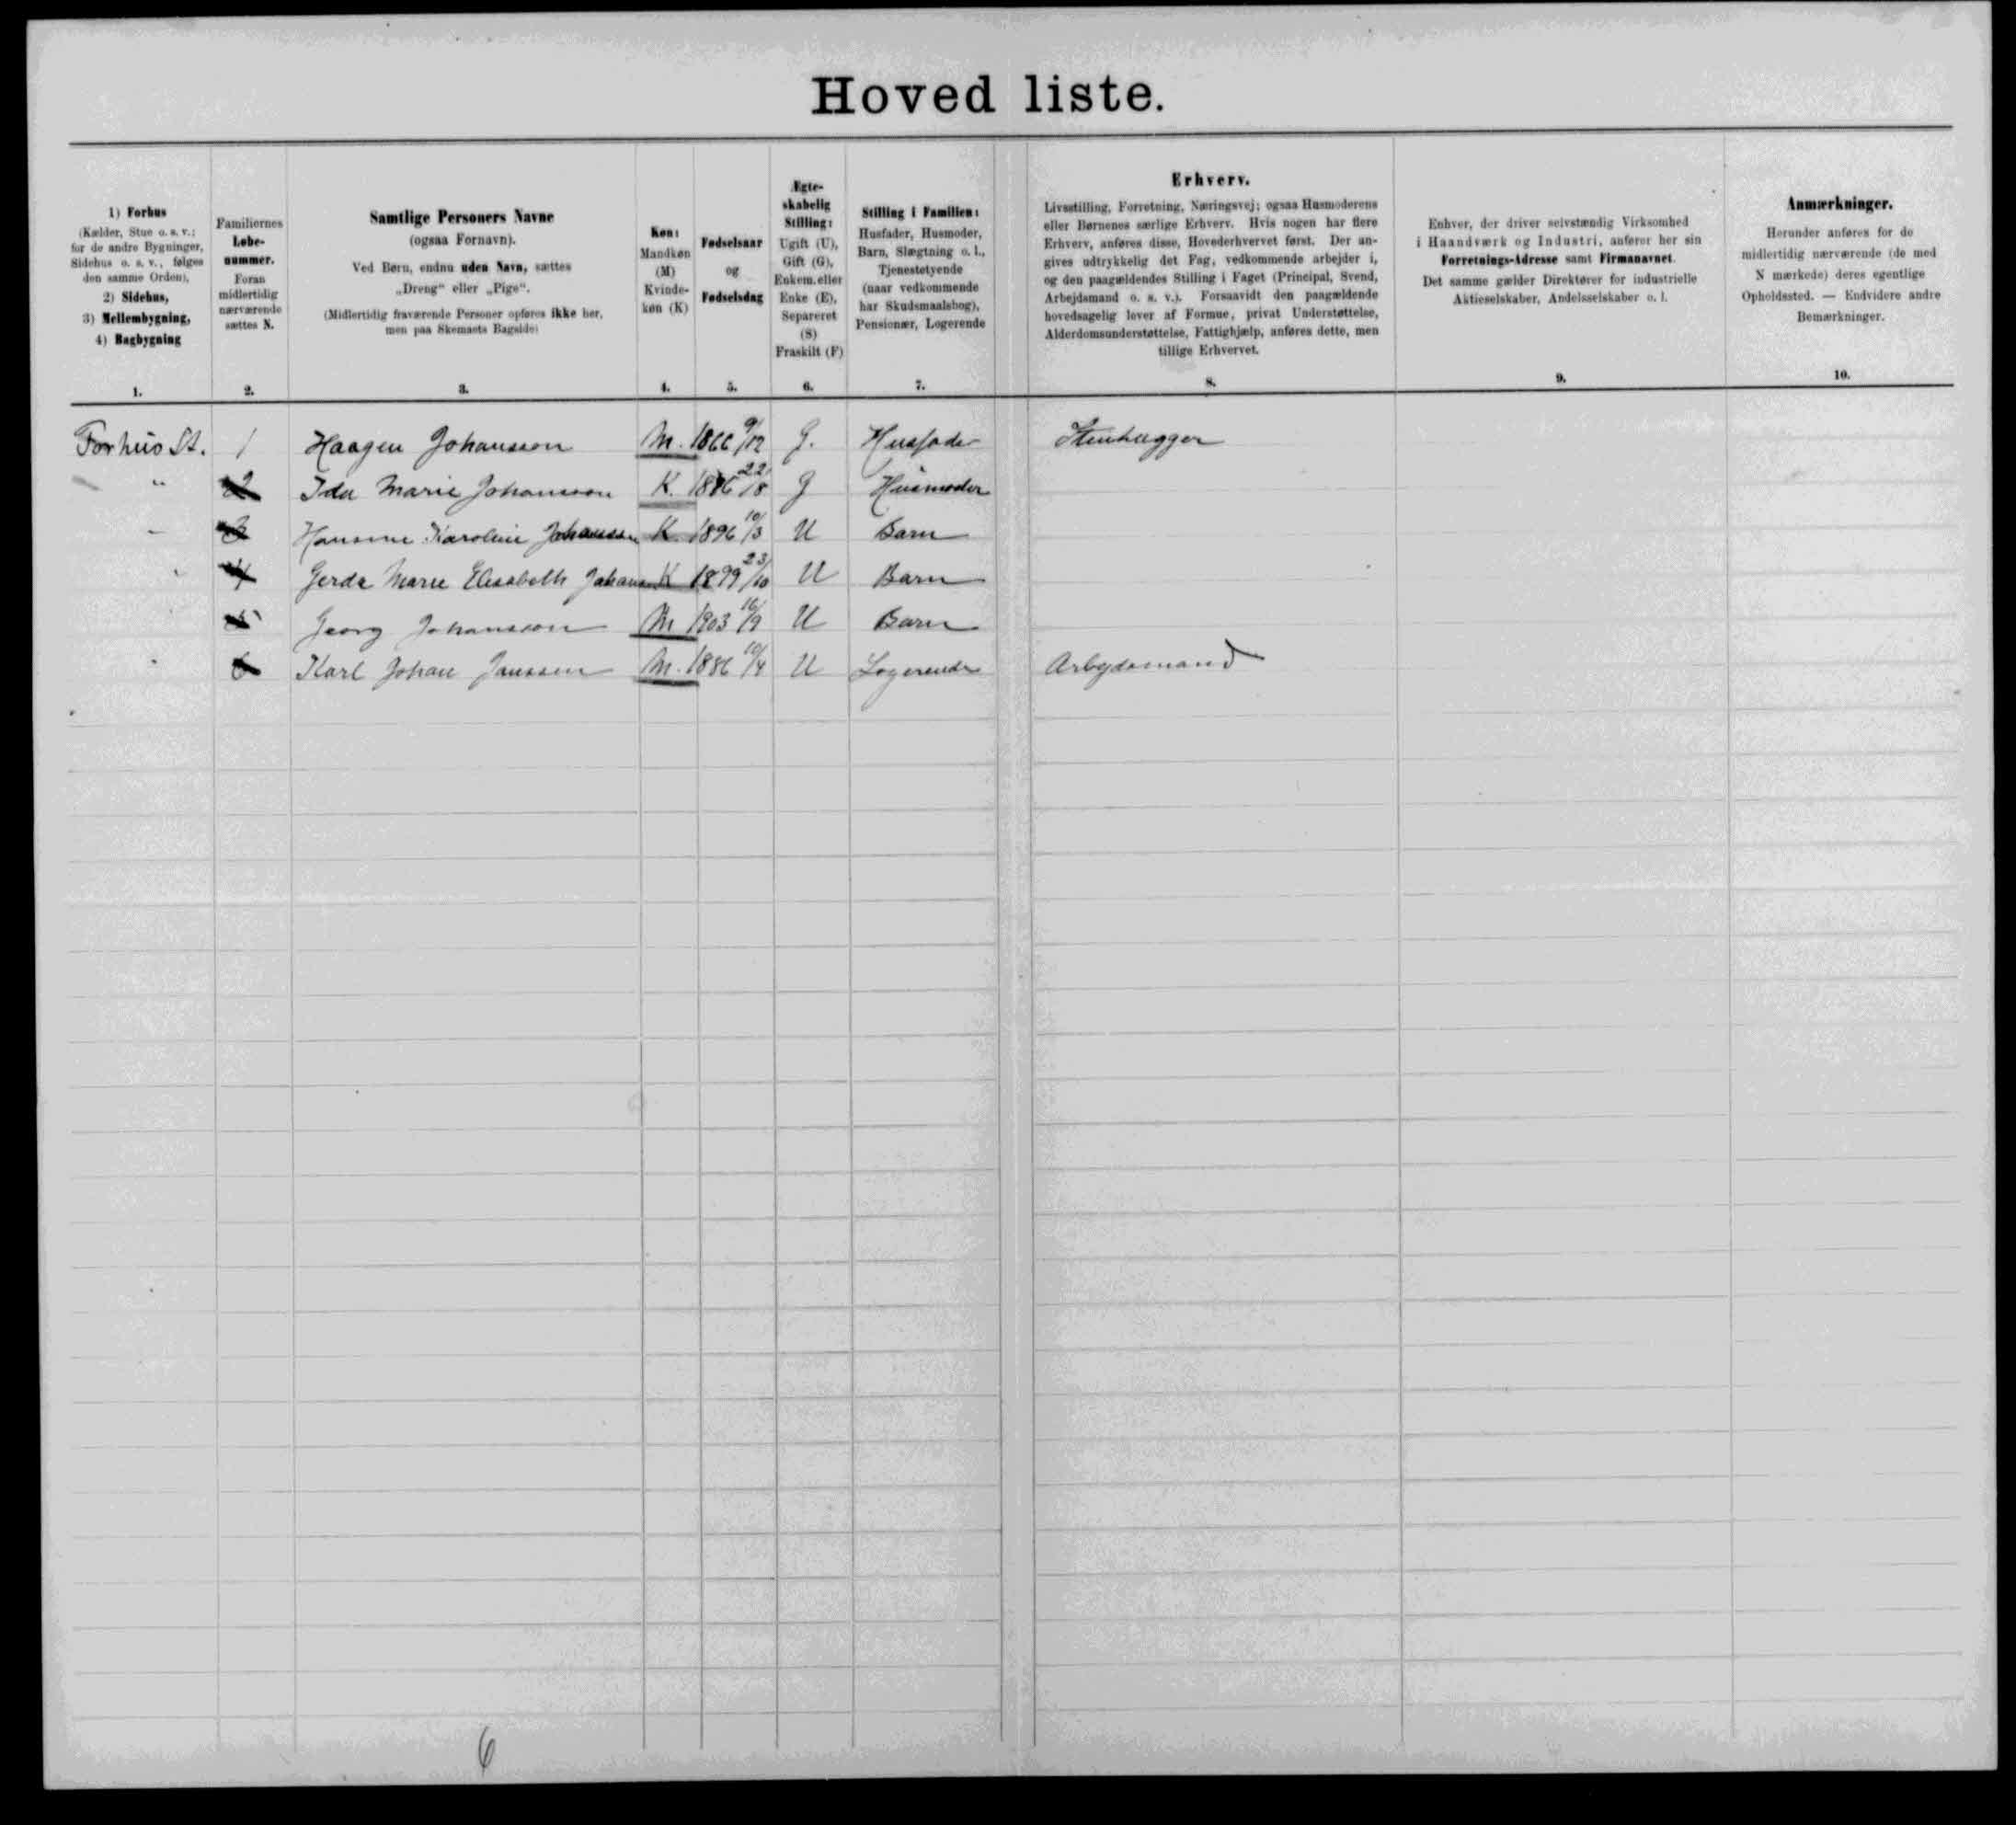 Hoved liste.
1) Forhus
(Kælder, Stue o. s. v.;
for de andre Bygninger,
Sidehus o. s. v., følges
den samme Orden),
2) Sidehus,
3) Mellembygning,
4) Bagbygning
1.
Familiernes
Løbe-
nummer.
Foran
midlertidig
nærværende
sættes N.
2.
Samtlige Personers Navne
(ogsaa Fornavn).
Ved Børn, endnu uden Navn, sættes
„Dreng“ eller „Pige“.
(Midlertidig fraværende Personer opføres ikke her,
men paa Skemaets Bagside)
3.
Køn:
Mandkøn
(M)
Kvinde-
køn (K)
4.
Fødselsaar
og
Fødselsdag
5.
Ægte-
skabelig
Stilling:
Ugift (U),
Gift (G),
Enkem. eller
Enke (E),
Separeret
(S)
Fraskilt (F)
6.
Stilling i Familien:
Husfader, Husmoder,
Barn, Slægtning o. l.,
Tjenestetyende
(naar vedkommende
har Skudsmaalsbog),
Pensionær, Logerende
7.
Erhverv.
Livsstilling, Forretning, Næringsvej; ogsaa Husmoderens
eller Børnenes særlige Erhverv. Hvis nogen har flere
Erhverv, anføres disse, Hovederhvervet først. Der an-
gives udtrykkelig det Fag, vedkommende arbejder i,
og den paagældendes Stilling i Faget (Principal, Svend,
Arbejdsmand o. s. v.). Forsaavidt den paagældende
hovedsagelig lever af Formue, privat Understøttelse,
Alderdomsunderstøttelse, Fattighjælp, anføres dette, men
tillige Erhvervet.
8.
Enhver, der driver selvstændig Virksomhed
i Haandværk og Industri, anfører her sin
Forretnings-Adresse samt Firmanavnet.
Det samme gælder Direktører for industrielle
Aktieselskaber, Andelsselskaber o. l.
9.
Anmærkninger.
Herunder anføres for de
midlertidig nærværende (de med
N mærkede) deres egentlige
Opholdssted. — Endvidere andre
Bemærkninger.
10.
Forhus St. 1 Haagen Johansson M. 1866 9/12 G. Husfader Stenhugger
" 2 Ida Marie Johansson K. 1876 22/8 G Husmoder
" 3 Hansine Karoline Johansson K 1896 10/3 U Barn
" 4 Gerda Marie Elisabeth Johanson K 1899 23/10 U Barn
5 Georg Johansson M 1903 16/9 U Barn
" 6 Karl Johan Janssen M. 1886 10/4 U Logerende Arbejdsmand
6